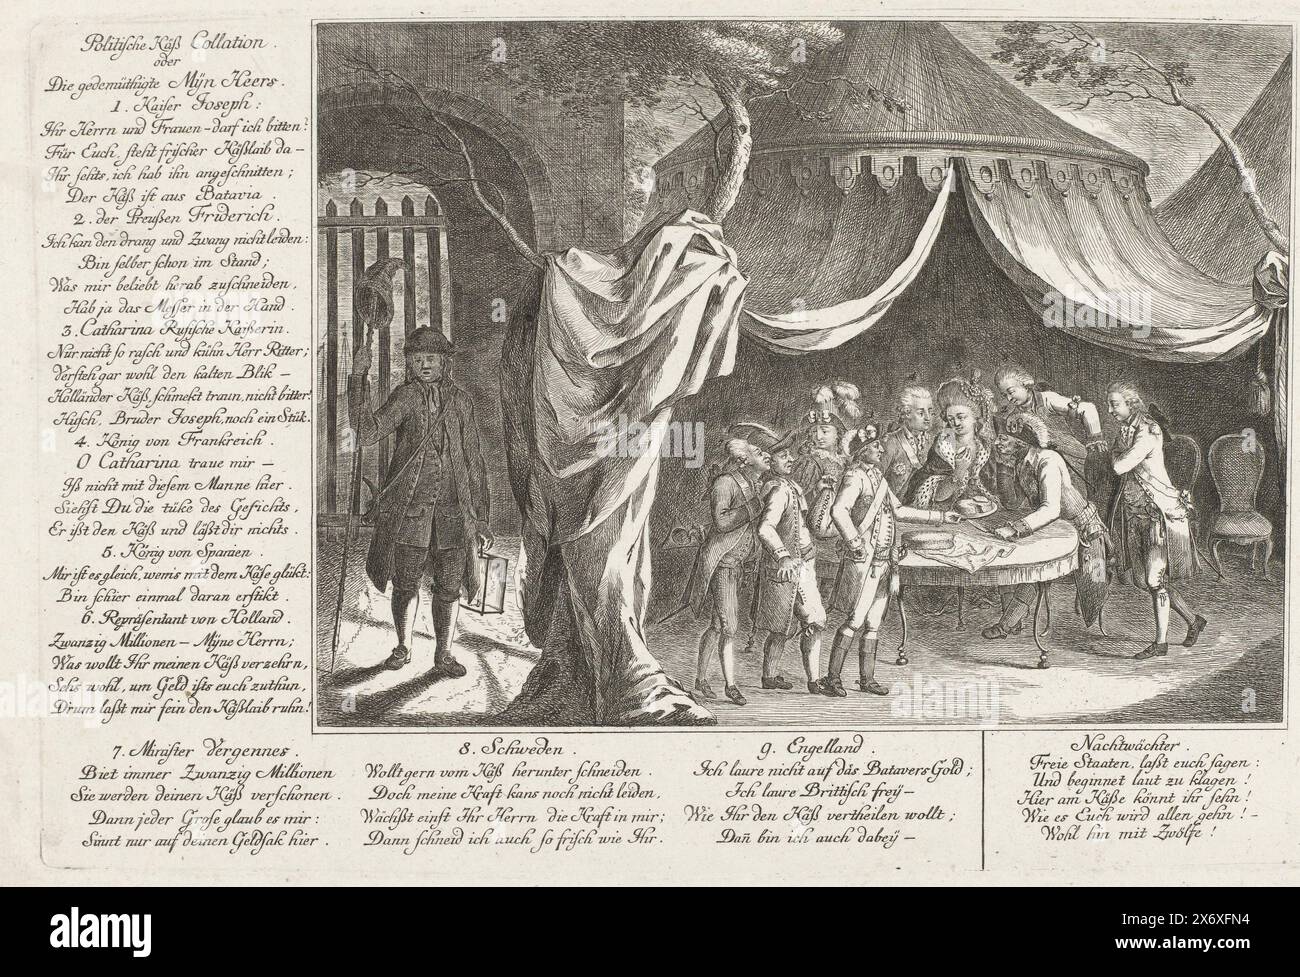 Politische Käß Collation.
oder
Die gedemüthigte Mÿn Heers.
1. Kaiser Joseph:
Ihr Herrn und Frauen-darf ich bitten?
Für Euch, steht frischer Käßlaib da-
Ihr sehts, ich hab ihn angeschnitten;
Der Käß ist aus Batavia.
2. der Preußen Friderich.
Ich kan den drang und Zwang nicht leiden:
Bin selber schon im Stand;
Was mir beliebt herab zuschneiden,
Hab ja das Messer in der Hand.
3. Catharina Rußische Kaißerin.
Nur nicht so rasch und kühn Herr Ritter;
Versteh gar wohl den kalten Blik-
Holländer Käß, schmekt traun, nicht bitter!
Husch, Bruder Joseph, noch ein Stük.
4. König von Frankreich.
O Catharina traue mir-
Iß nicht mit diesem Manne hier.
Siehst Du die tüke des Gesichts,
Er ißt den Käß und läßt dir nichts.
5. König von Spanien.
Mir ist es gleich, wenis mit dem Käse glükt:
Bin schier einmal daran erstikt.
6. Repräsentant von Holland.
Zwanzig Millionen-Mÿne Herrn;
Was wollt Ihr meinen Käß verzehrn,
Sehs wohl, um Geld ists euch zuthun,
Drum laßt mir fein den Käßlaib ruhn!
7. Minister Vergennes.
Biet immer Zwanzig Millionen
Sie werden deinen Käß verschonen.
Dann jeder Grose glaub es mir:
Sinnt nur auf deinen Geldsak hier.
8. Schweden.
Wollt gern vom Käß herunter schneiden.
Doch meine Kraft kans noch nicht leiden,
Wächßt einst Ihr Herrn die Kraft in mir;
Dann schneid ich auch so frisch wie Ihr.
9. Engelland.
Ich laure nicht auf das Batavers Gold;
Ich laure Brittisch freÿ-
Wie Ihr den Käß vertheilen wollt;
Dañ bin ich auch dabeÿ-
Nachtwächter.
Freie Staaten, laßt euch sagen:
Und beginnet laut zu klagen!
Hier am Käße könnt ihr sehn!
Wie es Euch wird allen gehn!-
Wohl hin mit Zwölfe!
alamy
Image ID: 2X6XFN4
www.alamy.com